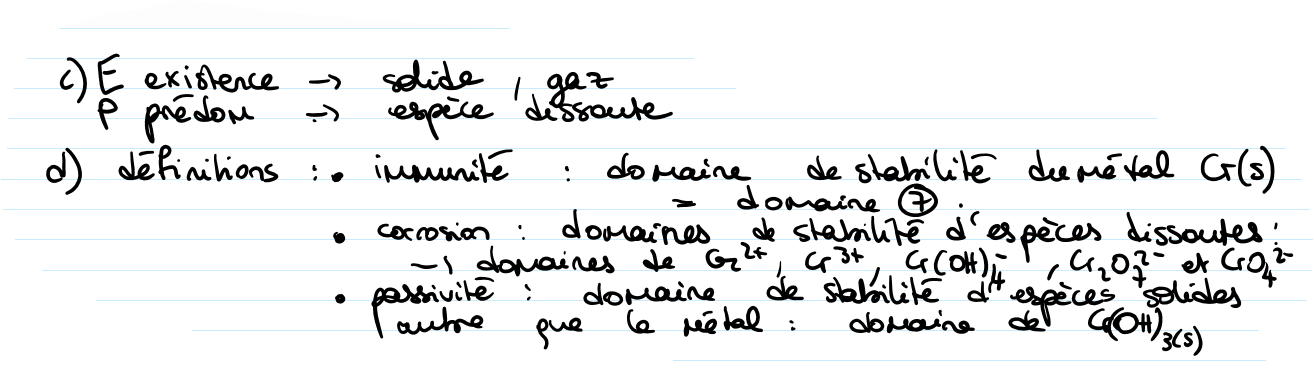 c) E existence → solide, gaz
P prédom → espèce dissoute
d) définitions : • immunité : domaine de stabilité du métal Cr(s)
= domaine ⑦.
• corrosion : domaines de stabilité d'espèces dissoutes :
→ domaines de Cr²⁺, Cr³⁺, Cr(OH)₄⁻, Cr₂O₇²⁻ et CrO₄²⁻
• passivité : domaine de stabilité d'espèces solides
autre que le métal : domaine de Cr(OH)₃(s)